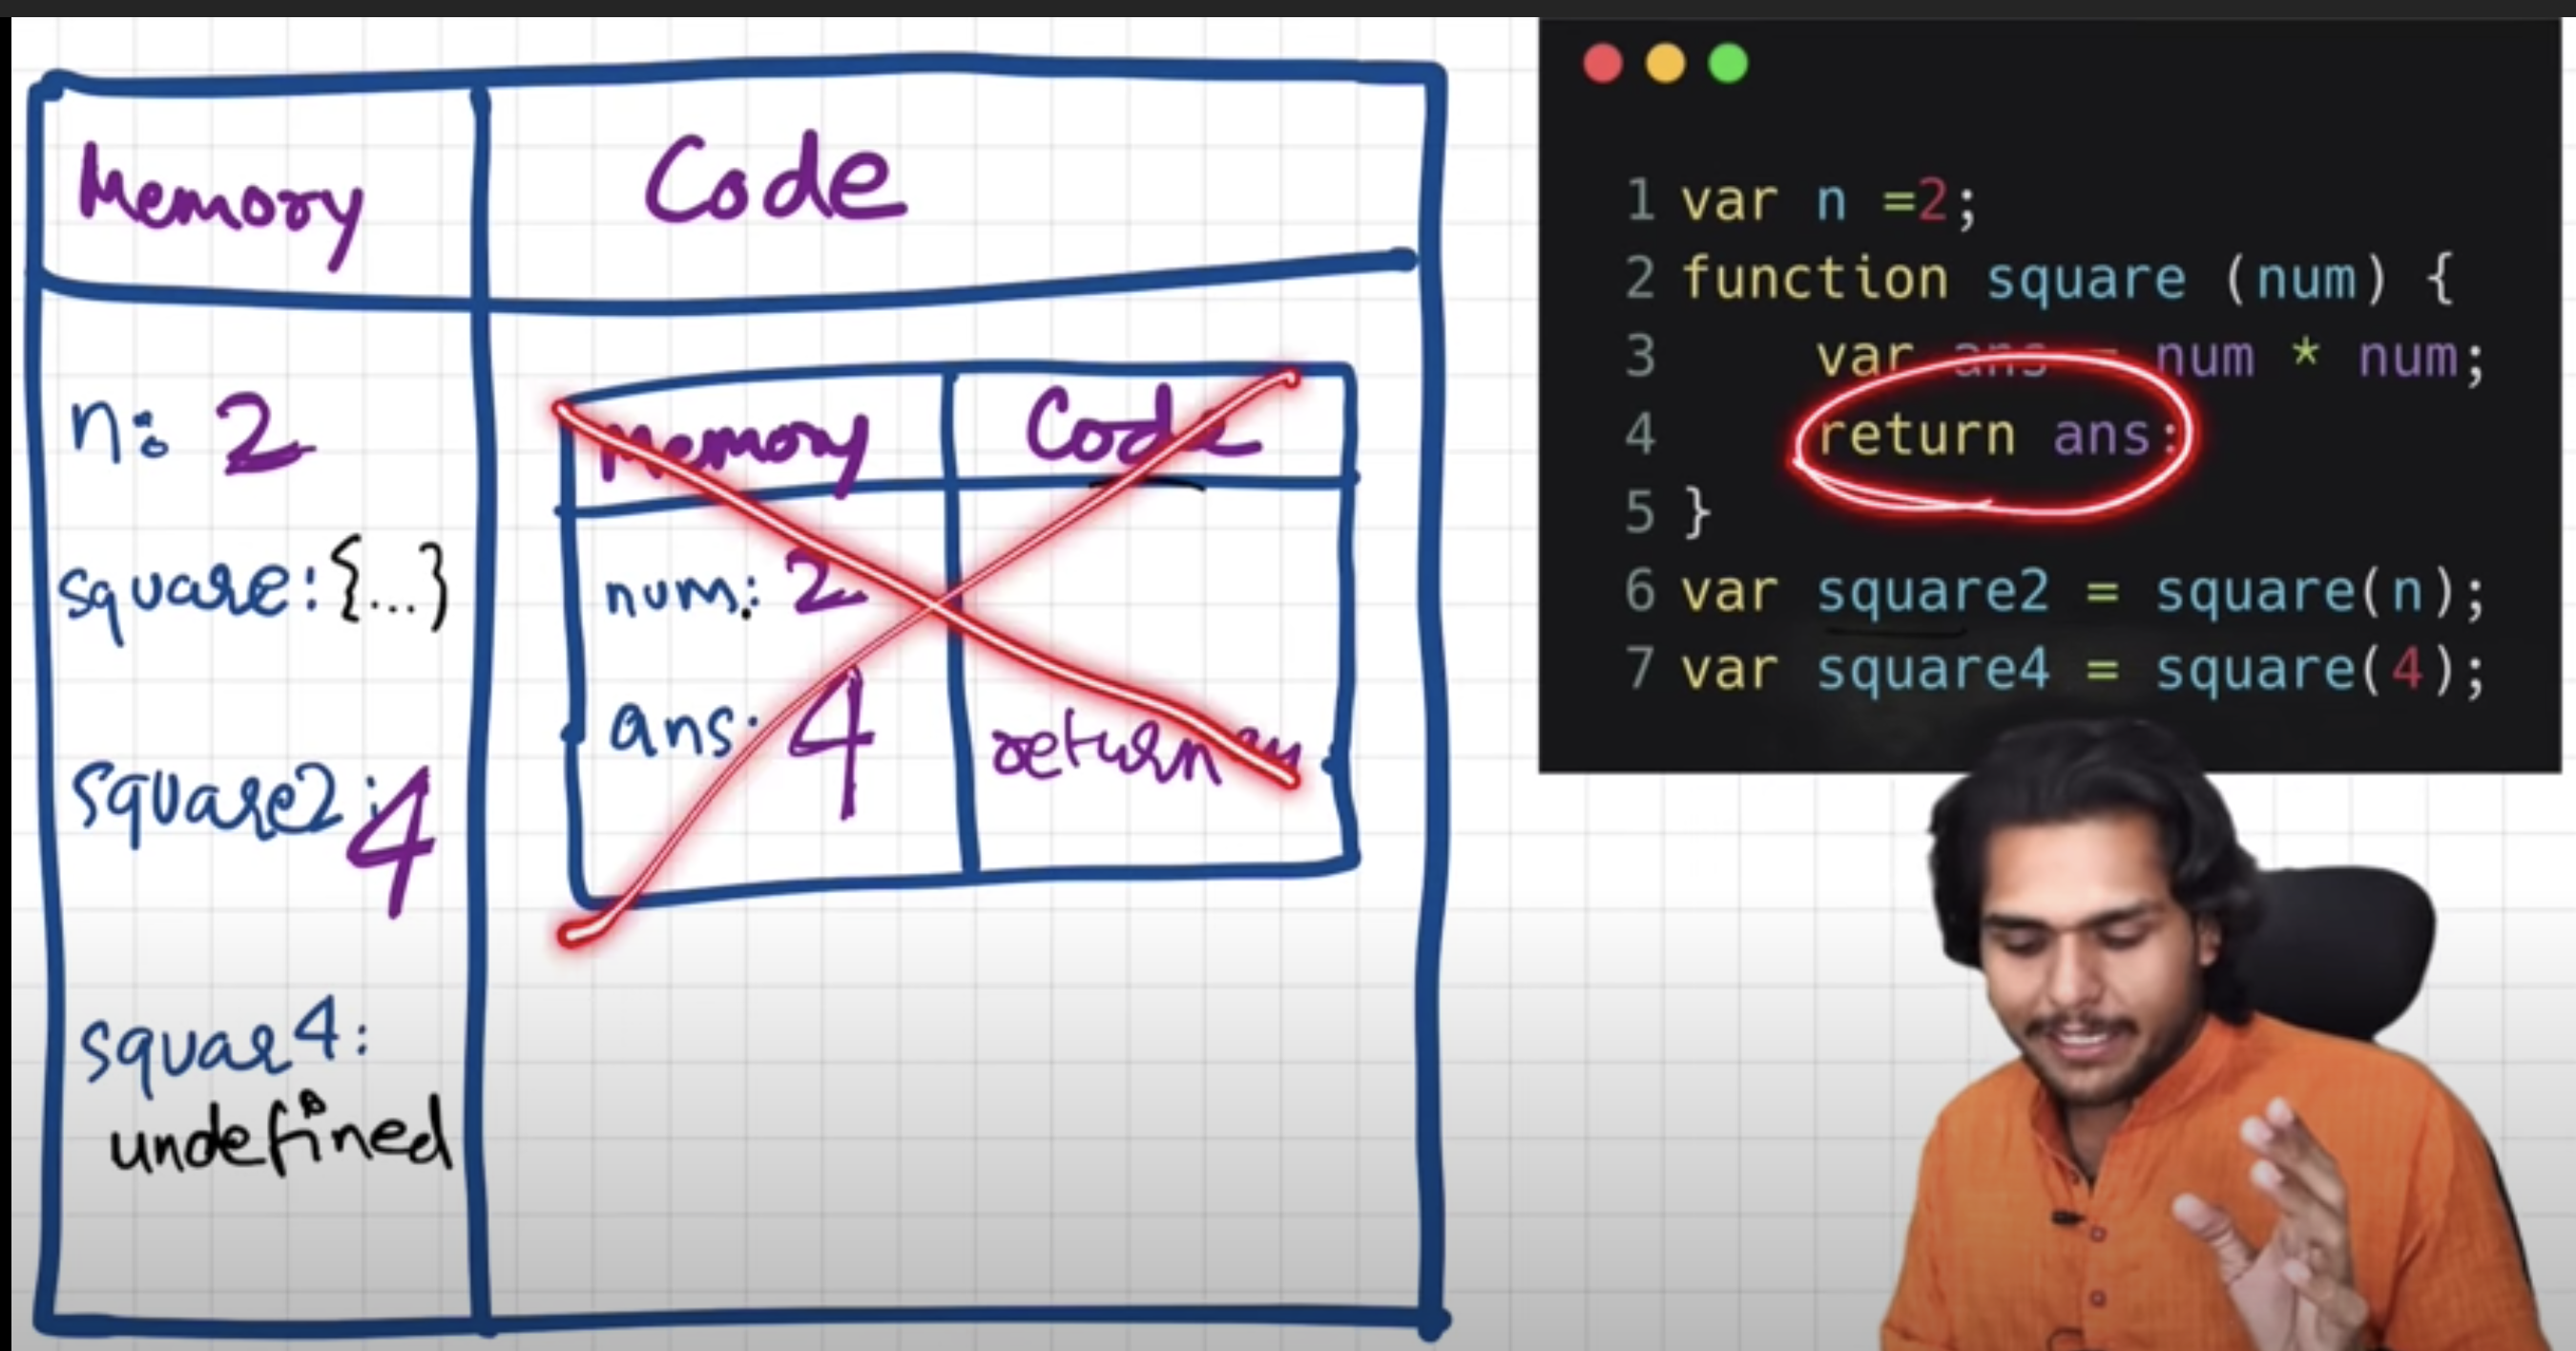 Memory
Code
n: 2
square: {...}
square2: 4
squar4:
undefined
Memory
Code
num: 2
ans: 4
return
1 var n =2;
2 function square (num) {
3 var ans = num * num;
4 return ans;
5 }
6 var square2 = square(n);
7 var square4 = square(4);